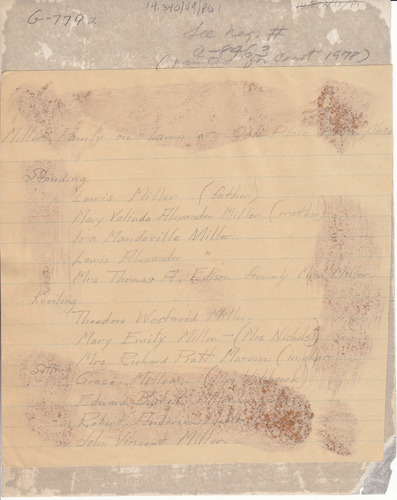 G-779a
14.340/49/801
See neg. #
a-8463
Miller Family on Lawn at Oak Place
Standing
Lewis Miller (father)
Mary Valinda Alexander Miller (mother)
Ira Mandeville Miller
Lewis Alexander "
Mrs Thomas A. Edison formerly Mina Miller
Kneeling
Theodore Westwood Miller
Mary Emily Miller - (Mrs Nichols)
Mrs. Richard Pratt Marvin
Grace Miller
Edward Miller
Robert Anderson
John Vincent Miller